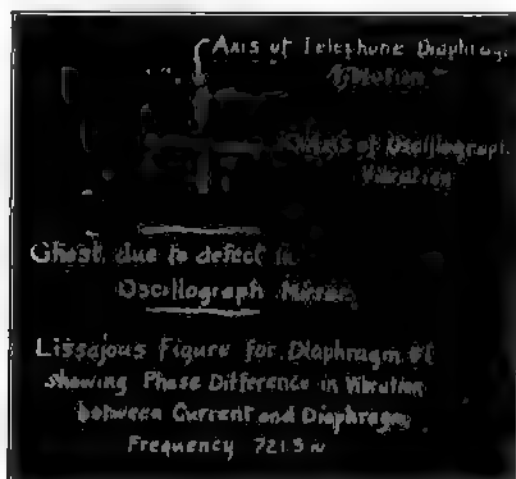 Axis of Telephone Diaphragm
Vibration
Axis of Oscillograph
Vibration
Ghost due to defect in
Oscillograph Mirror
Lissajous Figure for Diaphragm
showing Phase Difference in Vibration
between Current and Diaphragm
Frequency 721.3 ~